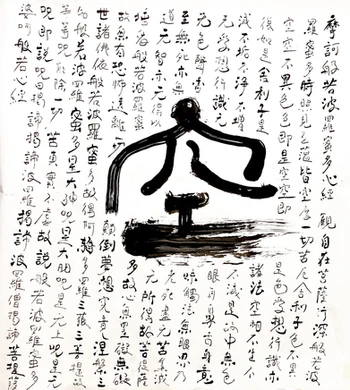 摩訶般若波羅蜜多心經 觀自在菩薩行深般若波
羅蜜多時照見五蘊皆空度一切苦厄舍利子色不異
空空不異色色即是空空即
是色受想行識亦
復如是舍利子是
諸法空相不生不
滅不垢不淨不增
不減是故空中無色
无受想行識无
眼耳鼻舌身意
无色聲香
味觸法无眼界乃
至無
老死盡无苦集滅
道无智亦无得以
无所得故菩提薩
埵依般若波羅蜜
多故心無罣礙無罣礙
故無有恐怖遠離一切
顛倒夢想究竟涅槃三
世諸佛依般若波羅蜜多故得阿耨多羅三藐三菩提故
知般若波羅蜜多是大神咒是大明咒是无上咒是无
等等咒能除一切苦真實不虛故說般若波羅蜜多
咒即說咒曰揭諦揭諦波羅揭諦波羅僧揭諦菩提薩
婆訶般若心經
空